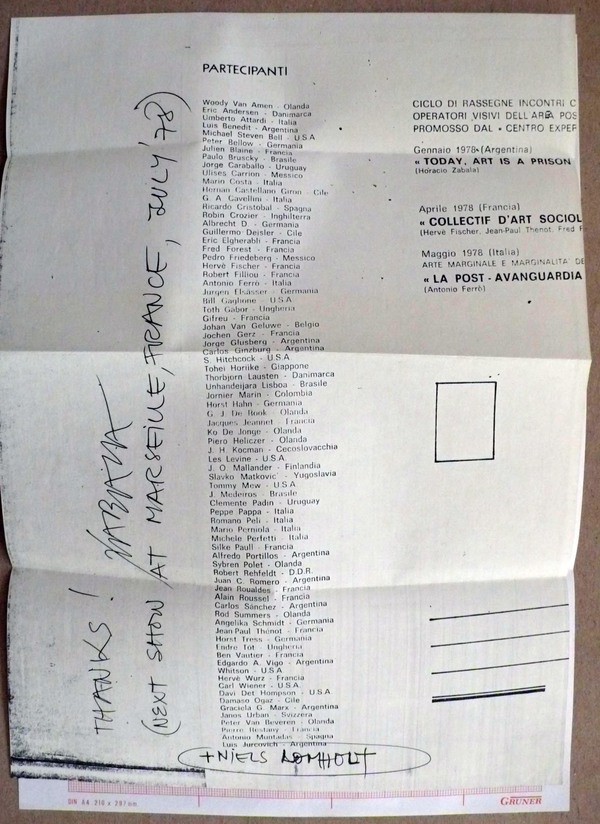 PARTECIPANTI
Woody Van Amen - Olanda
Eric Andersen - Danimarca
Umberto Attardi - Italia
Luis Benedit - Argentina
Michael Steven Bell - U.S.A
Peter Bellow - Germania
Julien Blaine - Francia
Paulo Bruscky - Brasile
Jorge Caraballo - Uruguay
Ulises Carrion - Messico
Mario Costa - Italia
Hernan Castellano Giron - Cile
G. A. Cavellini - Italia
Ricardo Cristobal - Spagna
Robin Crozier - Inghilterra
Albrecht D. - Germania
Guillermo Deisler - Cile
Eric Elgherabli - Francia
Fred Forest - Francia
Pedro Friedeberg - Messico
Hervé Fischer - Francia
Robert Filliou - Francia
Antonio Ferrò - Italia
Jurgen Elsässer - Germania
Bill Gaglione - U.S.A
Toth Gabor - Ungheria
Gifreu - Francia
Johan Van Geluwe - Belgio
Jochen Gerz - Francia
Jorge Glusberg - Argentina
Carlos Ginzburg - Argentina
S. Hitchcock - U.S.A.
Tohei Horiike - Giappone
Thorbjorn Lausten - Danimarca
Unhandeijara Lisboa - Brasile
Jornier Marin - Colombia
Horst Hahn - Germania
G. J. De Rook - Olanda
Jacques Jeannet - Francia
Ko De Jonge - Olanda
Piero Heliczer - Olanda
J. H. Kocman - Cecoslovacchia
Les Levine - U.S.A.
J. O. Mallander - Finlandia
Slavko Matkovic - Yugoslavia
Tommy Mew - U.S.A
J. Medeiros - Brasile
Clemente Padin - Uruguay
Peppe Pappa - Italia
Romano Peli - Italia
Mario Perniola - Italia
Michele Perfetti - Italia
Silke Paull - Francia
Alfredo Portillos - Argentina
Sybren Polet - Olanda
Robert Rehfeldt - D.D.R.
Juan C. Romero - Argentina
Jean Roualdes - Francia
Alain Roussel - Francia
Carlos Sánchez - Argentina
Rod Summers - Olanda
Angelika Schmidt - Germania
Jean Paul Thenot - Francia
Horst Tress - Germania
Endre Tót - Ungheria
Ben Vautier - Francia
Edgardo A. Vigo - Argentina
Whitson - U.S.A
Hervé Wurz - Francia
Carl Wiener - U.S.A
Davi Det Hompson - U.S.A
Damaso Ogaz - Cile
Graciela G. Marx - Argentina
Janos Urban - Svizzera
Peter Van Beveren - Olanda
Pierre Restany - Francia
Antonio Muntadas - Spagna
Luis Jurcovich - Argentina
+ NIELS LOMHOLT
CICLO DI RASSEGNE INCONTRI C
OPERATORI VISIVI DELL'AREA POS
PROMOSSO DAL « CENTRO EXPER
Gennaio 1978 (Argentina)
« TODAY, ART IS A PRISON
(Horacio Zabala)
Aprile 1978 (Francia)
« COLLECTIF D'ART SOCIOL
(Hervé Fischer, Jean-Paul Thenot, Fred F
Maggio 1978 (Italia)
ARTE MARGINALE E MARGINALITA' DE
« LA POST - AVANGUARDIA
(Antonio Ferrò)
THANKS! ZABALA
(NEXT SHOW AT MARSEILLE, FRANCE, JULY '78)
DIN A4 210 x 297 mm
GRUNER